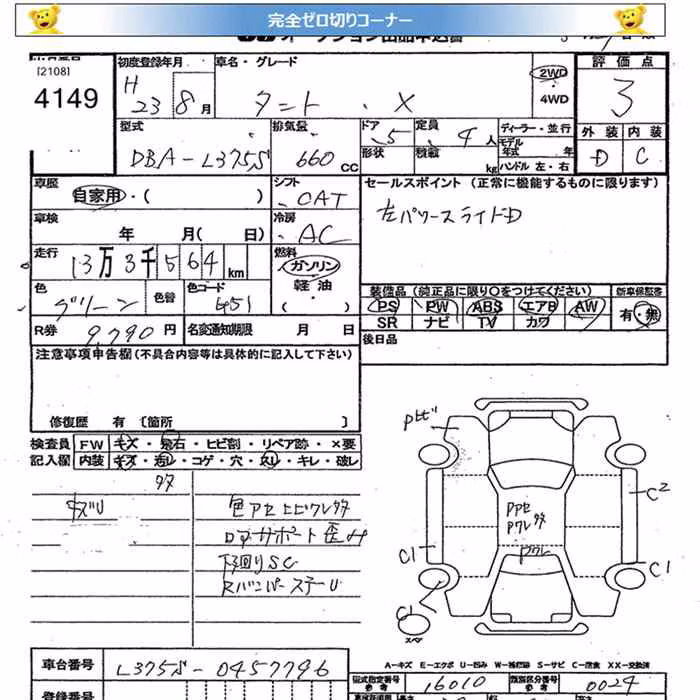 完全ゼロ切りコーナー
[2108]
4149
初度登録年月
H 23年 8月
車名・グレード
タント . X
2WD
・
4WD
評価点
3
外装 内装
D C
型式
DBA-L375S
排気量
660 CC
ドア 5
形状
定員 4人
積載 kg
ディーラー・並行
モデル年式 年
ハンドル 左・右
車歴
自家用・( )
シフト
OAT
セールスポイント (正常に機能するものに限ります)
左パワースライドD
車検
年 月( 日)
冷房
AC
走行
13万3千564km
燃料
ガソリン
軽油
・( )
色
グリーン
色替
色コード
G51
装備品 (純正品に限り○をつけてください)
新車保証書
PS PW ABS エアB AW
SR ナビ TV カワ
有・無
R券 9,790円
名変通知期限 月 日
後日品
注意事項申告欄 (不具合内容等は具体的に記入して下さい)
修復歴 有 [箇所 ]
検査員
記入欄
FW キズ・飛石・ヒビ割・リペア跡・×要
内装 キズ・汚レ・コゲ・穴・スレ・キレ・破レ
色アセ ヒビワレ多
ロアーサポート歪み
下回りSC
RバンパーステーU
C2
C1
C1
C1
スペア
A-キズ E-エクボ U-凹み W-補修跡 S-サビ C-腐食 XX-交換済
車台番号
L375S-0457796
型式指定番号
参考
16010
類別区分番号
参考
0024
登録番号